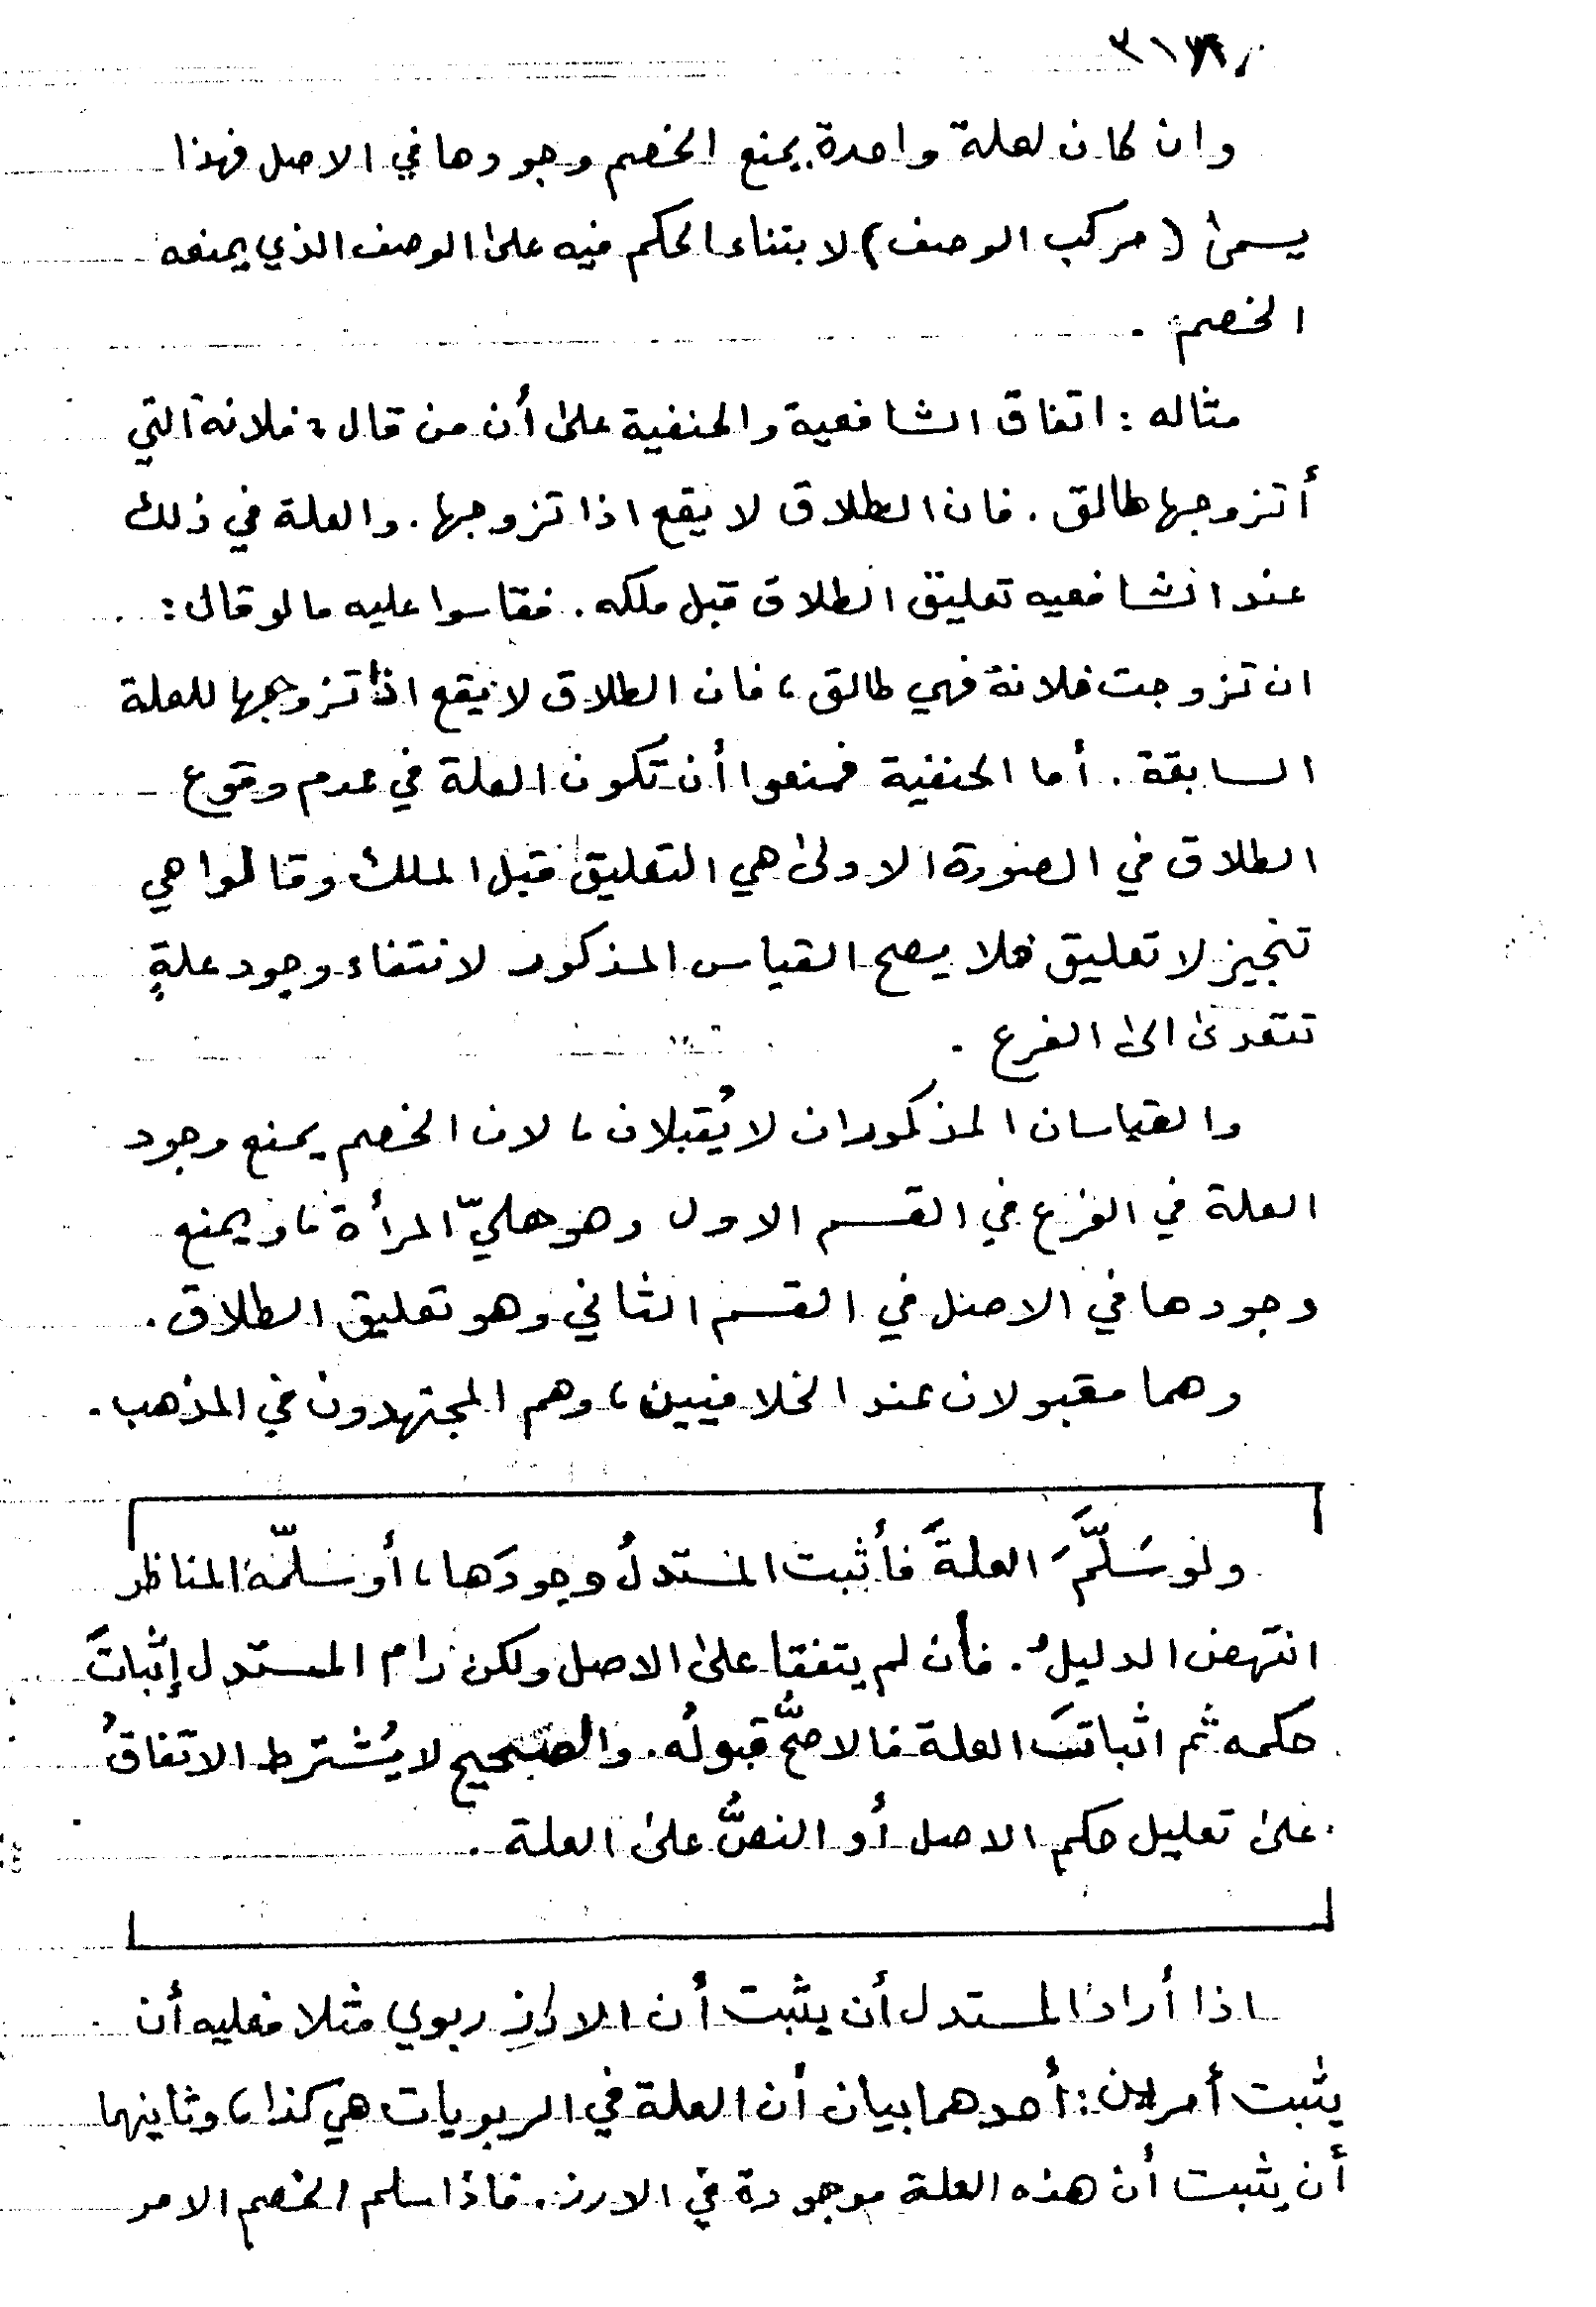 وان كان لعلة واحدة يمنع الخصم وجودها في الاصل فهذا
يسمى (مركب الوصف) لابتناء الحكم فيه على الوصف الذي يمنعه
الخصم .
مثاله : اتفاق الشافعية والحنفية على أن من قال : فلانة التي
أتزوجها طالق . فان الطلاق لا يقع اذا تزوجها . والعلة في ذلك
عند الشافعيه تعليق الطلاق قبل ملكه . فقاسوا عليه ما لو قال :
ان تزوجت فلانة فهي طالق ، فان الطلاق لا يقع اذا تزوجها للعلة
السابقة . أما الحنفية فمنعوا أن تكون العلة في عدم وقوع
الطلاق في الصورة الاولى هي التعليق قبل الملك وقالوا هي
تنجيز لا تعليق فلا يصح القياس المذكور لانتفاء وجود علةٍ
تتعدى الى الفرع .
والقياسان المذكوران لا يُقبلان ، لان الخصم يمنع وجود
العلة في الفرع في القسم الاول وهو حليّ المرأة ، ويمنع
وجودها في الاصل في القسم الثاني وهو تعليق الطلاق .
وهما مقبولان عند الخلافيين ، وهم المجتهدون في المذهب .
ولو سَلَّمَ العلةَ فأثبت المستدلُ وجودَها ، أو سلّمه المناظر
انتهض الدليلُ . فأن لم يتفقا على الاصل ولكن رام المستدل إثباتَ
حكمه ثم اثباتَ العلة فالاصحُّ قبولُه . والصحيح لا يُشترط الاتفاقُ
على تعليل حكم الاصل أو النصُّ على العلة .
اذا أراد المستدل أن يثبت أن الارز ربوي مثلا فعليه أن
يثبت أمرين : أحدهما بيان أن العلة في الربويات هي كذا ، وثانيهما
أن يثبت أن هذه العلة موجودة في الارز . فاذا سلم الخصم الامر